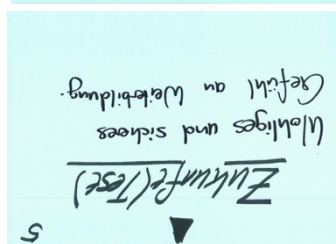 5
Zukunfts(Tase)
Wohliges und sicheres
Gefühl an Weiterbildung.